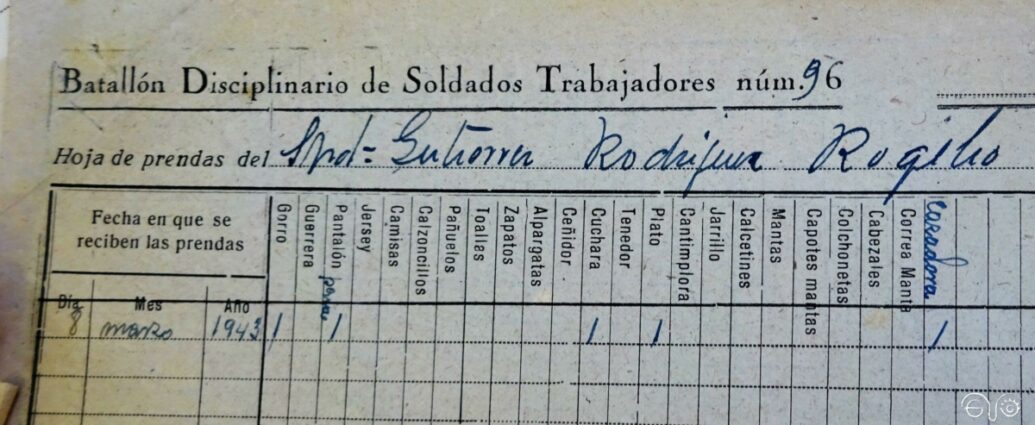 Batallón Disciplinario de Soldados Trabajadores núm. 96
Hoja de prendas del Spdo- Gutiérrez Rodríguez Rogelio
Fecha en que se
reciben las prendas
Día Mes Año
Gorro
Guerrera
Pantalón
Jersey
Camisas
Calzoncillos
Pañuelos
Toallas
Zapatos
Alpargatas
Ceñidor
Cuchara
Tenedor
Plato
Cantimplora
Jarrillo
Calcetines
Mantas
Capotes mantas
Colchonetas
Cabezales
Correa Manta
Cazadora
8 marzo 1943 1 1 1 1 1